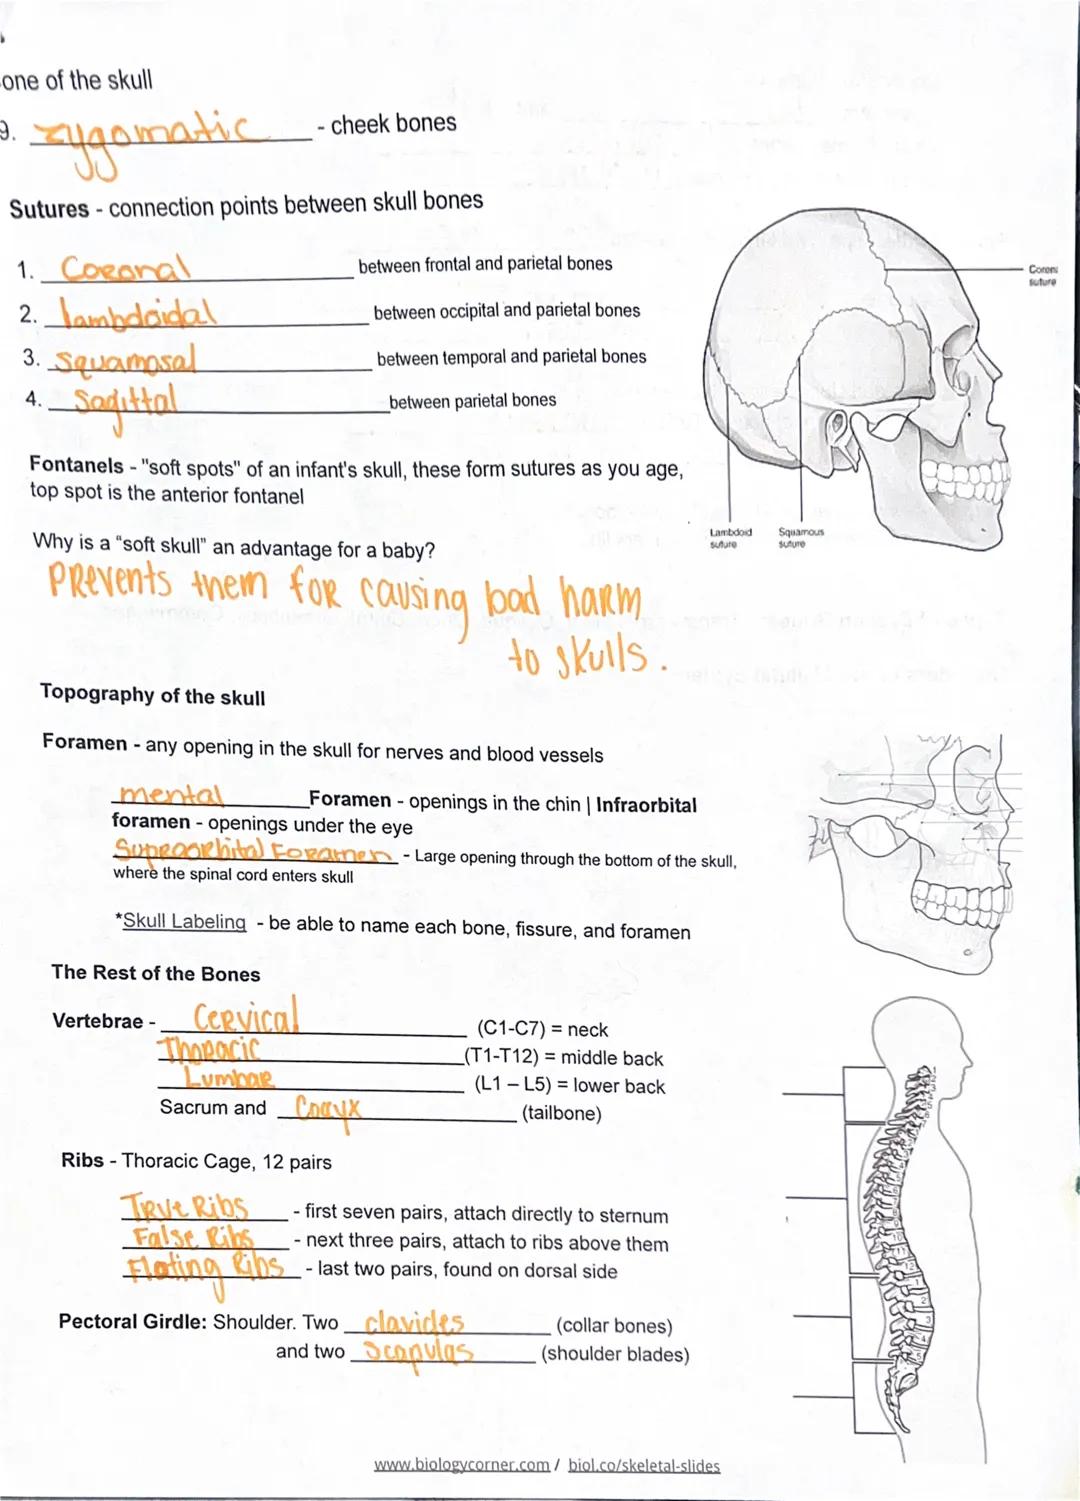 one of the skull
9. zygomatic - cheek bones
Sutures - connection points between skull bones
1. Coronal between frontal and parietal bones
2. lambdoidal between occipital and parietal bones
3. Squamosal between temporal and parietal bones
4. Sagittal between parietal bones
Corona
suture
Fontanels - "soft spots" of an infant's skull, these form sutures as you age,
top spot is the anterior fontanel
Lambdoid
suture
Squamous
suture
Why is a "soft skull" an advantage for a baby?
Prevents them for causing bad harm
to skulls.
Topography of the skull
Foramen - any opening in the skull for nerves and blood vessels
mental Foramen - openings in the chin | Infraorbital
foramen - openings under the eye
Supraorbital Foramen - Large opening through the bottom of the skull,
where the spinal cord enters skull
*Skull Labeling - be able to name each bone, fissure, and foramen
The Rest of the Bones
Vertebrae - Cervical (C1-C7) = neck
Thoracic (T1-T12) = middle back
Lumbar (L1 – L5) = lower back
Sacrum and Cocyx (tailbone)
Ribs - Thoracic Cage, 12 pairs
True Ribs - first seven pairs, attach directly to sternum
False Ribs - next three pairs, attach to ribs above them
Floting Ribs - last two pairs, found on dorsal side
Pectoral Girdle: Shoulder. Two clavicles (collar bones)
and two Scapulas (shoulder blades)
www.biologycorner.com / biol.co/skeletal-slides